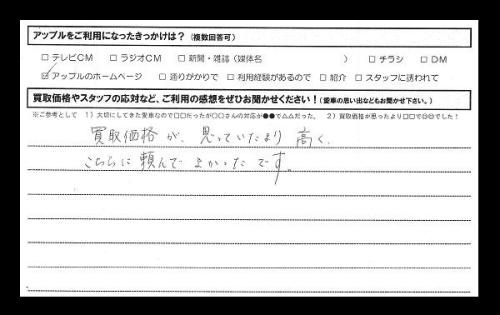 アップルをご利用になったきっかけは?(複数回答可)
□ テレビCM □ ラジオCM □ 新聞・雑誌(媒体名 ) □ チラシ □ DM
☑ アップルのホームページ □ 通りがかりで □ 利用経験があるので □ 紹介 □ スタッフに誘われて
買取価格やスタッフの応対など、ご利用の感想をぜひお聞かせください!(愛車の思い出などもお聞かせ下さい。)
※ご参考として 1)大切にしてきた愛車なので□□だったが○○さんの対応が●●で△△だった。 2)買取価格が思ったより□□で◎◎でした!
買取価格が、思っていたより高く、
こちらに頼んでよかったです。